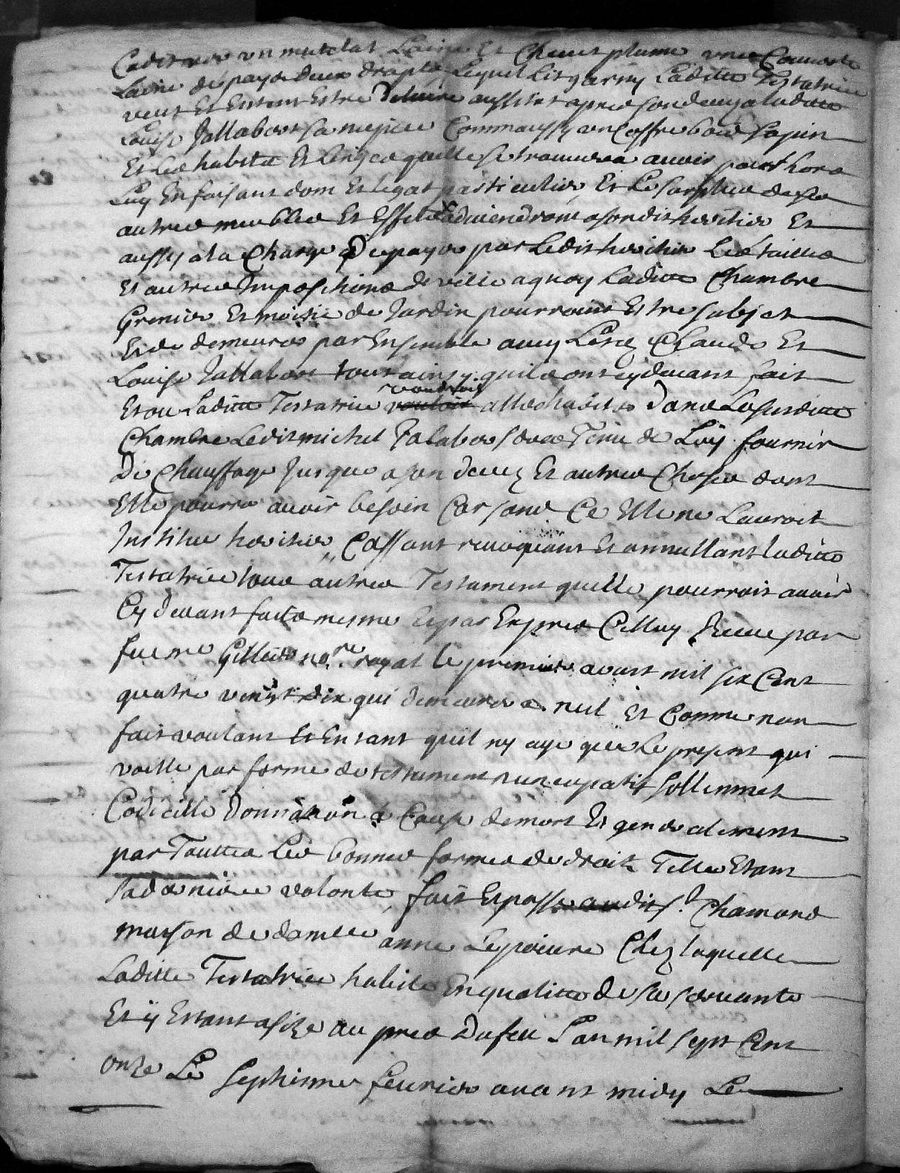 Cadis vert un matelat Laine et Cheuet plume une Couuerte
Laine de pays deux draps Lequel Lit garny Laditte Testatrice
veut et Entent Estre deliuré aussitot apres son deces a laditte
Louise Jallabert sa niepce Comm'aussy un Coffre bois sapin
Et Les habits Et Linges quelle se trouuera auoir pour Lors
Luy En faisant dom Et legat particulier Et Le surplus de ses
autres meubles Et Effets aduiendront a son dit heritier Et
aussy a la Charge de payer par Ledit heritier Les tailles
Et autres Impositions de ville a quoy Laditte Chambre
Grenier Et moitié de Jardin pourroint Estre subjet
Et de demeurer par Ensemble auec Lesd Claude Et
Louise Jallabert tout ainsy quils ont cy deuant fait
Et ou Laditte Testatrice voudroit aller habiter Dans La susditte
Chambre Ledit michel Jalabert sera Tenu de Luy fournir
De Chauffage Jusques a son deces Et autres Choses dont
Elle pourra auoir besoin Car sans Ce Elle ne Lauroit
Institué heritier Cassant reuoquant Et annullant laditte
Testatrice tous autres Testament quelle pourroit auoir
Cy deuant faits mesme Et par Exprés Celluy Receu par
fut me Gillier nore royal le premier aoust mil six Cent
quatre vingt dix qui demeurera nul Et Comme non
fait voulant Et Entant quil ny aye que Le present qui
vaille par forme de testament nuncupatif sollemnel
Codicille Donnation a Cause de mort Et generalement
par Touttes Les bonnes formes de droit Telle Etant
sa derniere volonté fait Et passé audit St Chamond
maison de damlle anne Lepinure Chez laquelle
Laditte Testatrice habite En qualité de sa seruante
Et y Estant assize au pres du feu L'an mil sept Cent
onze Le septieme feurier auant midy Le